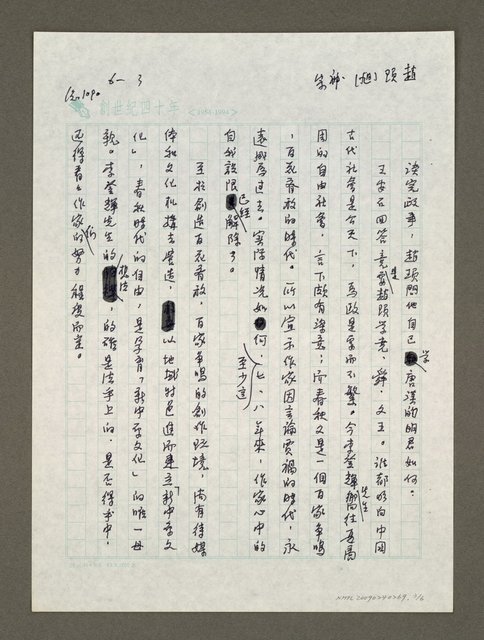 談完政事,趙頊問他自己學唐漢的明君如何。
王安石回答竟是要趙頊學堯、舜、文王。誰都明白中國
古代社會是公天下,為政是寡而不繁。今李登輝先生嚮往夏周
周的自由社會,言下頗有深意;而春秋又是一個百家爭鳴
,百花齊放的時代。所以宣示作家因言論賈禍的時代,永
遠成為過去。實際情況如何,至少這七、八年來,作家心中的
自我設限已經解除了。
至於創造百花齊放,百家爭鳴的創作環境,尚有待媒
体和文化机構去營造,以地域特色進而建立「新中原文
化」,春秋時代的自由,是孕育「新中原文化」的唯一母
親。李登輝先生的想法,的確是法乎上的,是否得乎中,
還得看看作家們的努力程度而異。
創世紀四十年
(1954-1994)
6-3
NMTL20090290269, 3/6